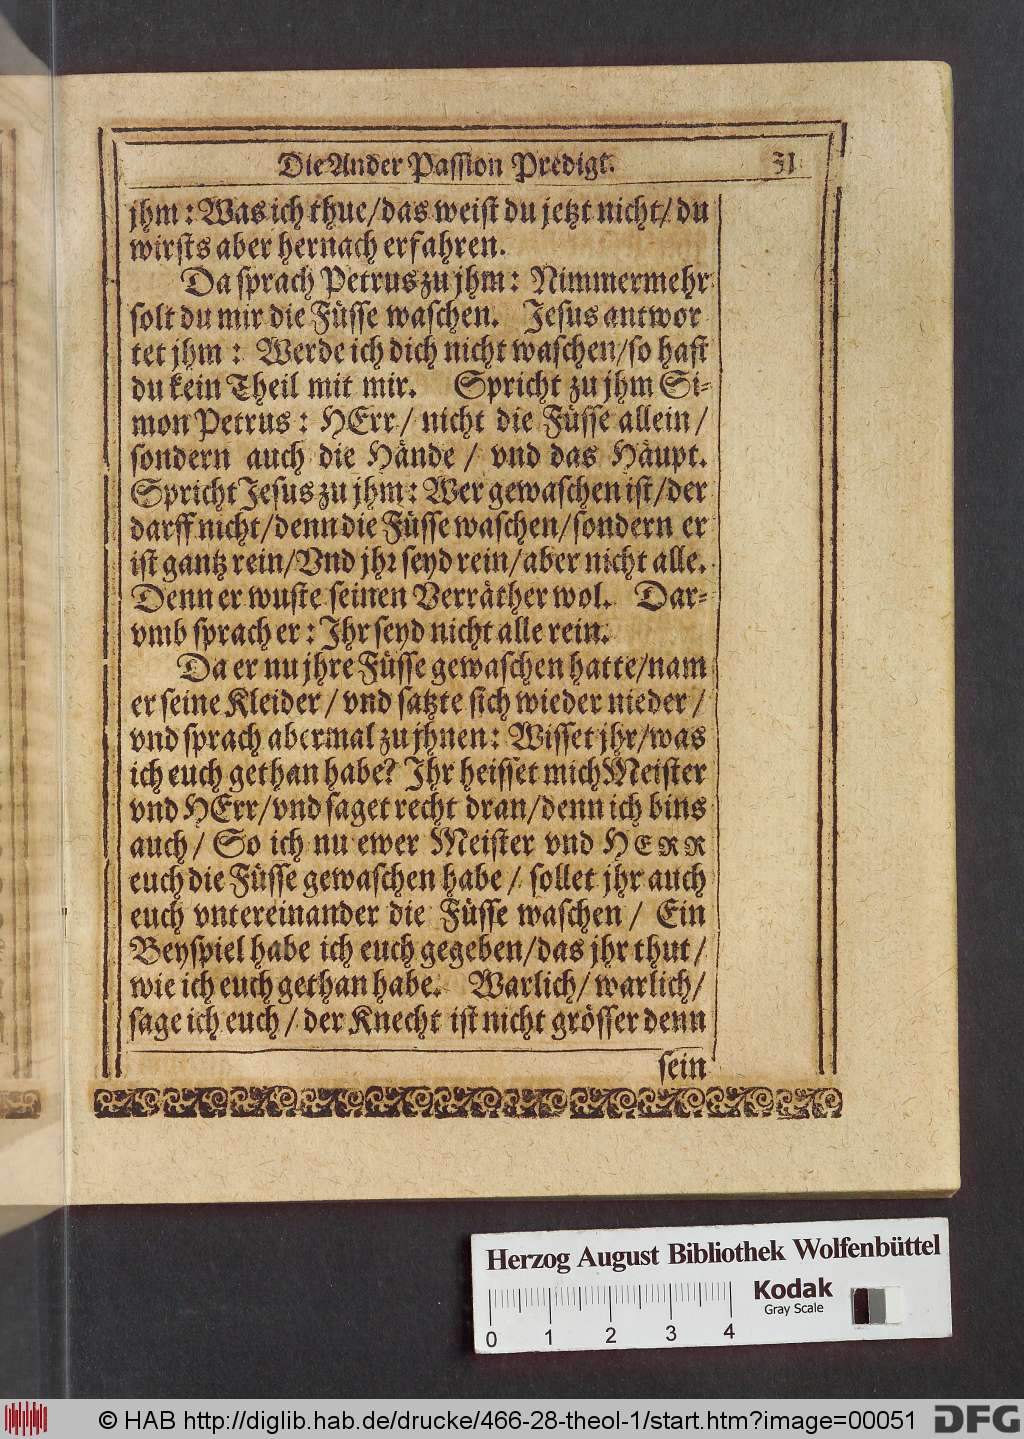 Die Ander Passion Predigt. 31.
jhm: Was ich thue/das weist du jetzt nicht/ du
wirsts aber hernach erfahren.
Da sprach Petrus zu jhm: Nimmermehr
solt du mir die Füsse waschen. Jesus antwor
tet jhm: Werde ich dich nicht waschen/so hast
du kein Theil mit mir. Spricht zu jhm Si-
mon Petrus: HErr/ nicht die Füsse allein/
sondern auch die Hände/ vnd das Häupt.
Spricht Jesus zu jhm: Wer gewaschen ist/der
darff nicht/denn die Füsse waschen/sondern er
ist gantz rein/Vnd jhr seyd rein/aber nicht alle.
Denn er wuste seinen Verräther wol. Dar-
vmb sprach er: Ihr seyd nicht alle rein.
Da er nu jhre Füsse gewaschen hatte/nam
er seine Kleider/ vnd satzte sich wieder nieder/
vnd sprach abermal zu jhnen: Wisset jhr/was
ich euch gethan habe? Ihr heisset mich Meister
vnd HErr/vnd saget recht dran/denn ich bins
auch/ So ich nu ewer Meister vnd HERR
euch die Füsse gewaschen habe/ sollet jhr auch
euch vntereinander die Füsse waschen/ Ein
Beyspiel habe ich euch gegeben/das jhr thut/
wie ich euch gethan habe. Warlich/ warlich/
sage ich euch/ der Knecht ist nicht grösser denn
sein
Herzog August Bibliothek Wolfenbüttel
Kodak
Gray Scale
0 1 2 3 4
© HAB http://diglib.hab.de/drucke/466-28-theol-1/start.htm?image=00051 DFG